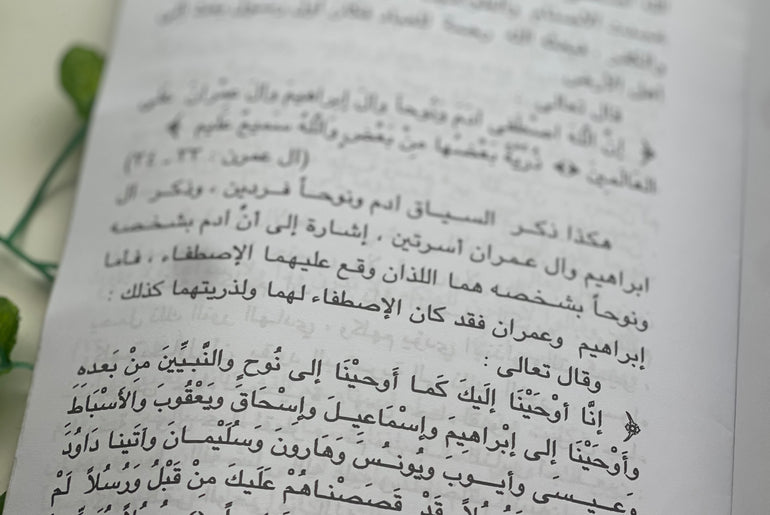 أهل الأرض
قال تعالى :
﴿ إنّ اللهَ اصْطَفى آدم ونُوحاً وآلَ إبراهيمَ وآلَ عِمْرانَ على
العالمينَ ۞ ذُرّيّةً بَعْضُها مِنْ بَعْضٍ واللهُ سَميعٌ عَليم ﴾
(آل عمرن : ٣٣ ـ ٣٤)
هكذا ذكر السياق آدم ونوحاً فردين ، وذكر آل
ابراهيم وآل عمران أسرتين ، إشارة إلى أنَّ آدم بشخصه
ونوحاً بشخصه هما اللذان وقع عليهما الإصطفاء ، فأما
إبراهيم وعمران فقد كان الإصطفاء لهما ولذريتهما كذلك :
وقال تعالى :
﴿ إنَّا أوْحَيْنَا إلَيكَ كَما أَوحيْنَا إلى نُوحٍ والنَّبيِّينَ مِنْ بَعدهِ
وأَوْحَيْنَا إلى إبْراهيمَ وإسْمَاعيلَ وإسْحَاقَ ويَعْقُوبَ والأسْبَاطَ
وَعيسَى وأيوبَ ويُونسَ وَهَارونَ وَسُلَيْمانَ وآتَينا دَاوُدَ
قَدْ قَصَصْنَاهُمْ عَلَيكَ مِنْ قَبْلُ وَرُسُلاً لَمْ